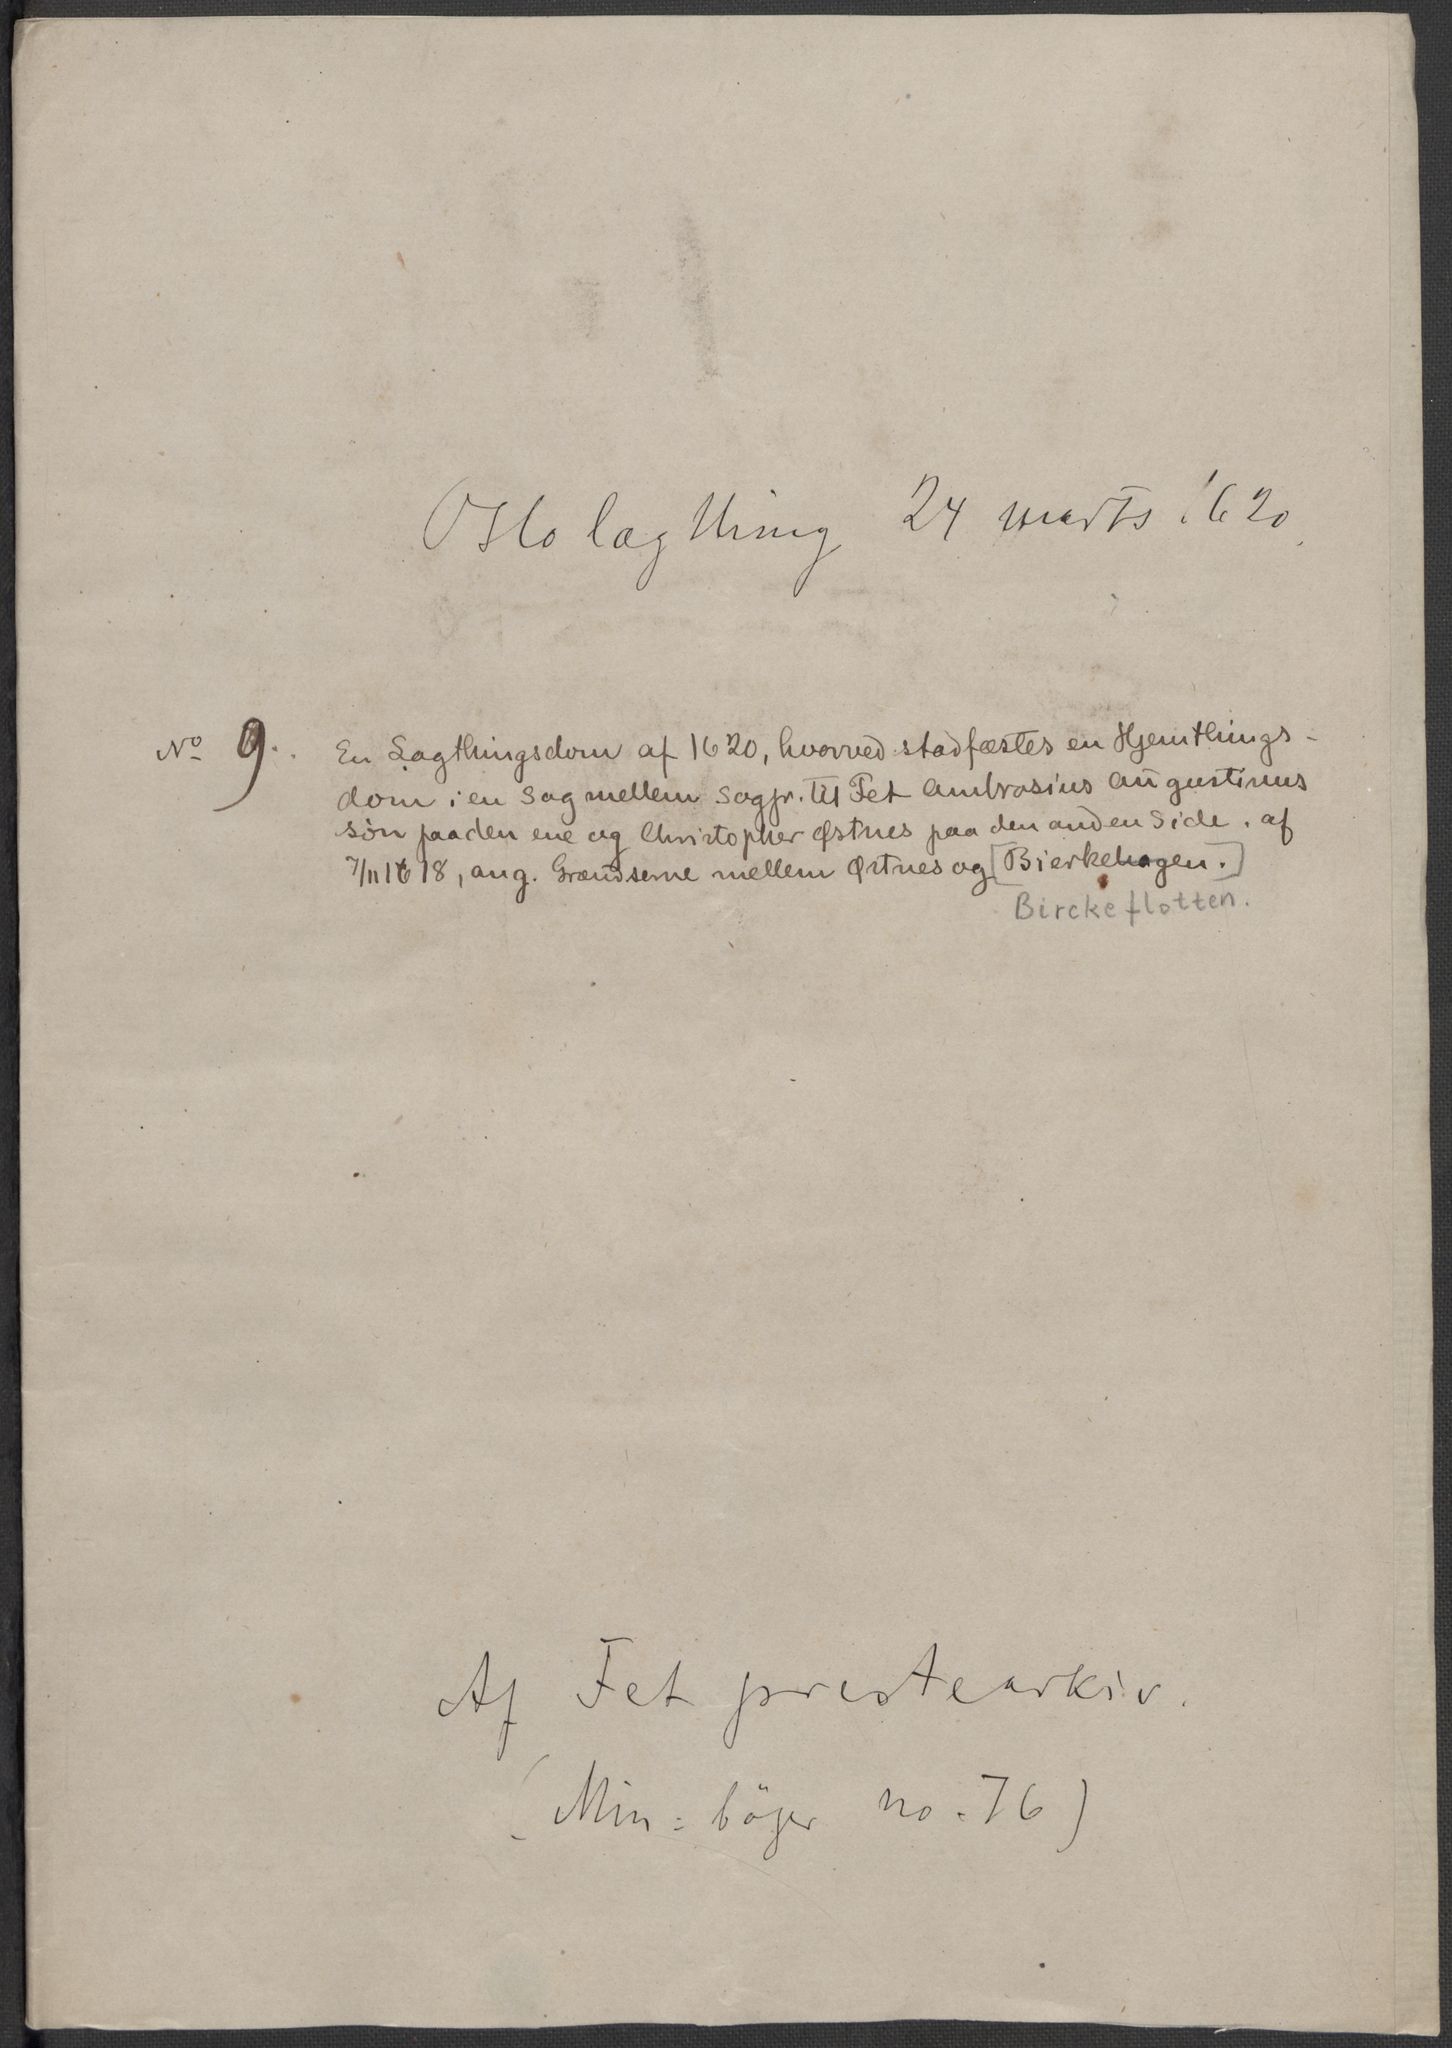 Oslo lagthing 24 marts 1620.
No 9. En Lagthingsdom af 1620, hvorved stadfæstes en Hjemthings-
dom i en Sag mellem Sogpr. til Fet Ambrosius Augustinus
søn paa den ene og Christopher Østnes paa den anden Side. af
7/11 1618, ang. Grændserne mellem Østnes og [Bierkehagen.]
Birckeflotten.
Af Fet prestearkiv.
(Min: böger no. 76)